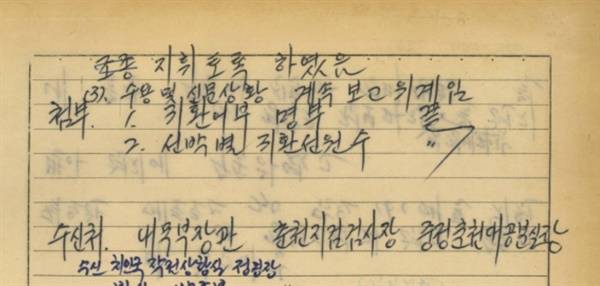 조종 지휘토록 하였음
(3). 수용 및 신문상황 계속 보고 위계임
첨부. 1. 귀환어부 명부 끝
2. 선박별 귀환선원수 〃
수신처. 내무부장관 춘천지검검사장 중정춘천대공분실장
수신 치안국 작전상황실 정보과